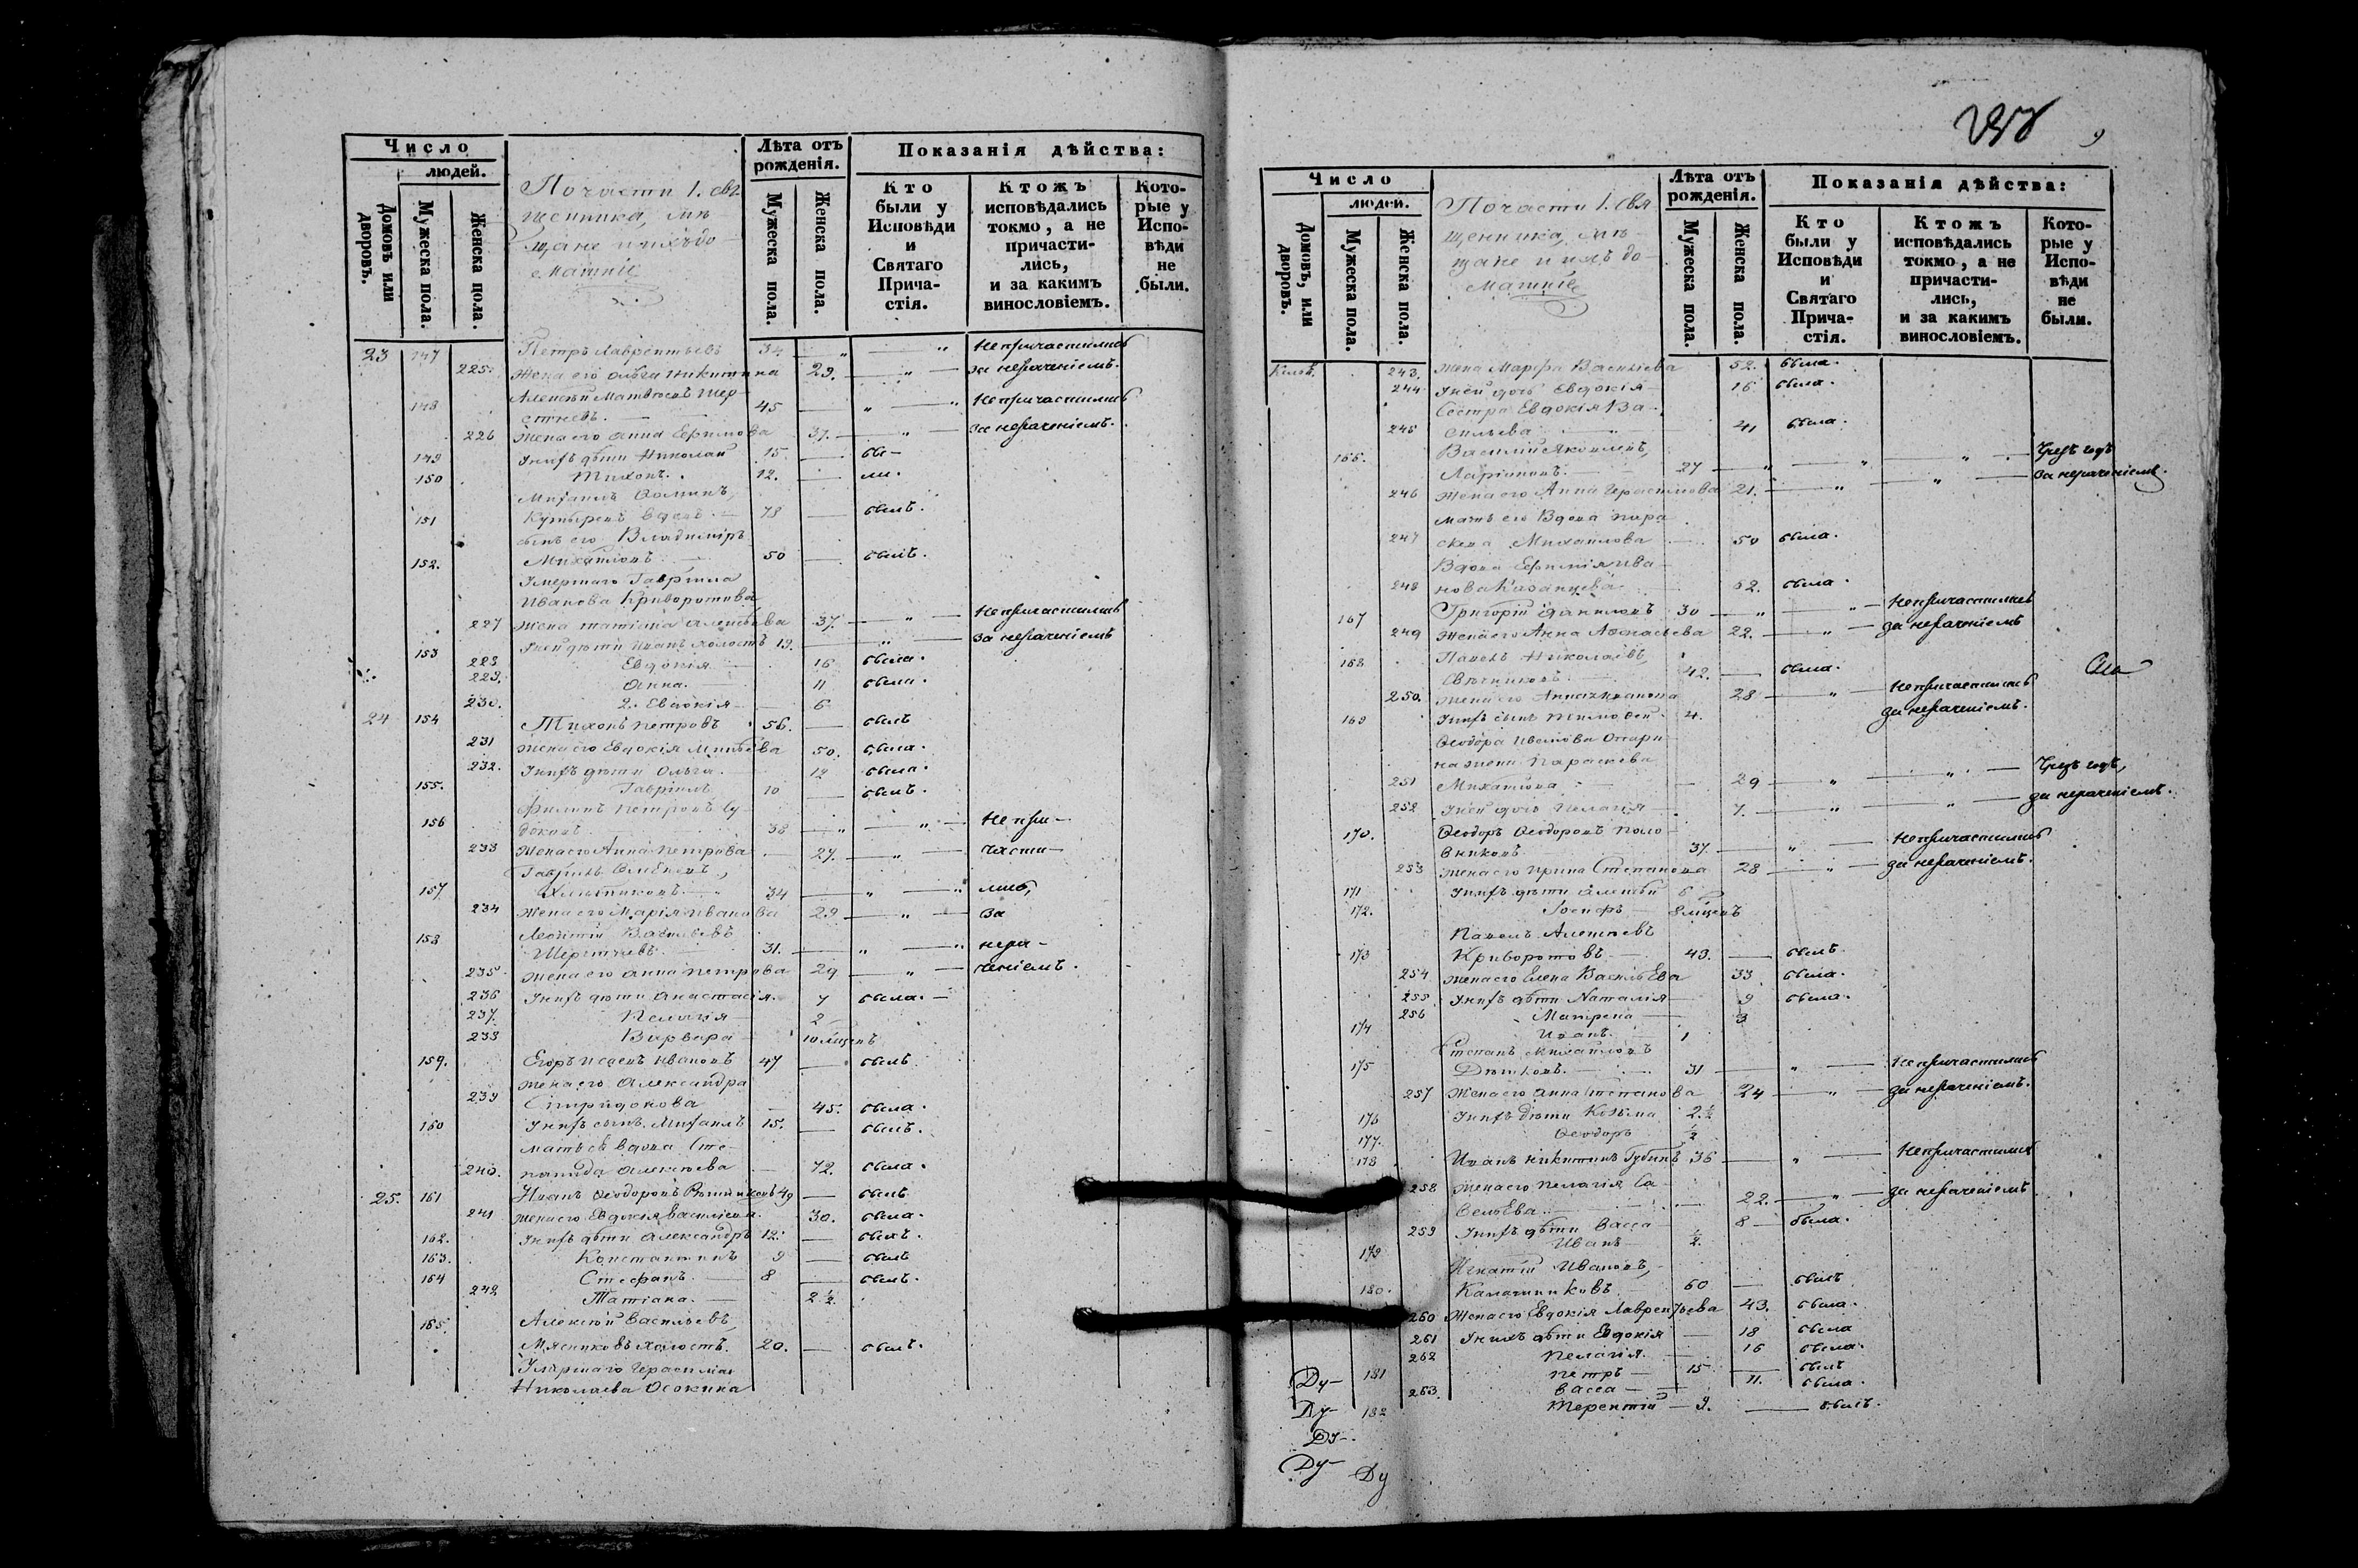 Число
людей.
Домовъ или дворовъ.
Мужеска пола.
Женска пола.
По части 1. свя-
щенника, мѣ-
щане и ихъ до-
машніе
Лѣта отъ
рожденія.
Мужеска пола.
Женска пола.
Показанія дѣйства:
Кто
были у
Исповѣди
и
Святаго
Прича-
стія.
Ктожъ
исповѣдались
токмо, а не
причасти-
лись,
и за какимъ
винословіемъ.
Кото-
рые у
Испо-
вѣди
не
были.
23 147 Петръ Лаврентьевъ 34 " " Непричастились
225. Жена его Ольга Никитина 29. " за нераченіемъ.
Алексѣй Матвѣевъ Шер-
148 стневъ. 45 " " Непричастились
226 Жена его Анна Ефимова 37. " за нераченіемъ.
149 У нихъ дѣти Николай 15. бы-
150 Тихонъ. 12. ли.
Михаилъ
151 вдовъ 78 былъ.
сынъ его Владиміръ
152. Михайловъ 50 былъ.
Умершаго Гавріила
Иванова Криворотова
227 Жена Татіана Алексѣева 37. " Непричастились
153 У ней дѣти Иванъ холостъ 19. " за нераченіемъ
228 Евдокія 16 была.
229. Анна. 11 была.
230. 2. Евдокія 6
24 154 Тихонъ Петровъ 56. былъ
231 Жена его Евдокія 50. была.
232. У нихъ дѣти Ольга. 12 была.
155. Гавріилъ 10 былъ.
Филипъ Петровъ Су-
156 доковъ 38 " " Непри-
233 Жена его Анна Петрова 27. " части-
Гавріилъ
157 34 " " лись,
234 Жена его Марія Иванова 29 " за
Леонтій Васильевъ
158 31. " " нера-
235 Жена его Анна Петрова 29 " ченіемъ.
236 У нихъ дѣти Анастасія. 7 была.
237. Пелагія 2
238 Варвара 10 мѣсяцевъ
159. Егоръ Ивановъ 47 былъ
Жена его Александра
239 Спиридонова 45. была.
160 У нихъ сынъ Михаилъ 15. былъ.
мать ея вдова Сте-
240. панида Алексѣева 72. была.
25. 161 Иванъ Ѳеодоровъ 49 былъ
241 Жена его Евдокія Васильева. 30. была.
162. У нихъ дѣти Александръ 12. былъ.
163. Константинъ 9 былъ
164 Стефанъ. 8 былъ.
242 Татіана. 2 ½.
Алексѣй Васильевъ,
165. Мясниковъ холостъ. 20. былъ.
Умершаго Герасима
Николаева Осокина
9
Число
людей.
Домовъ, или дворовъ.
Мужеска пола.
Женска пола.
По части 1. свя-
щенника, мѣ-
щане и ихъ до-
машніе
Лѣта отъ
рожденія.
Мужеска пола.
Женска пола.
Показанія дѣйства:
Кто
были у
Исповѣди
и
Святаго
Прича-
стія.
Ктожъ
исповѣдались
токмо, а не
причасти-
лись,
и за какимъ
винословіемъ.
Кото-
рые у
Испо-
вѣди
не
были.
243. Жена Марфа Васильева 52. была.
244 У ней дочь Евдокія 16 была.
Сестра Евдокія Ва-
245 сильева 41 была.
Василій Яковлевъ,
166. Ларіоновъ. 27 " " " Чрезъ годъ
246 Жена его Анна Герасимова 21. " " за нераченіемъ.
мать его Вдова Пара-
247 скева Михайлова 50 была.
Вдова Ефимія Ива-
248 нова Казанцева 62. была.
167 Григорій Даниловъ 30 " " Непричастились
249 Жена его Анна Аѳанасьева 22. " за нераченіемъ
Павелъ Николаевъ,
168 Овчинниковъ. 42. была.
250. Жена его Анна Иванова 28 " Непричастилась
169 У нихъ сынъ Тимофей 4. за нераченіемъ.
Ѳеодора Иванова Опари-
на жена Параскева
251 Михайлова 29 " " Чрезъ годъ,
252 У ней дочь Пелагія 7. " " за нераченіемъ.
170. Ѳеодоръ Ѳеодоровъ Поло-
вниковъ 37. " Непричастились
253 Жена его Ирина Степанова 28 " за нераченіемъ.
171 У нихъ дѣти Алексѣй 6
172. Іосифъ 8 мѣсяцевъ
Павелъ Алексѣевъ
173 Криворотовъ. 43. былъ
254 Жена его Елена Васильева 33 была.
255 У нихъ дѣти Наталія 9 была.
256 Матрена 3
174 Иванъ. 1
Степанъ Михайловъ
175 31 " Непричастились
257 Жена его Анна Степанова 24 " за нераченіемъ.
176 У нихъ дѣти Козьма 2. ½
177. Ѳеодоръ ½
178 Иванъ Никитинъ Губинъ 36 " Непричастились
258 Жена его Пелагія Са-
вельева 22. " за нераченіемъ
259 У нихъ дѣти Васса 8 была.
179 Иванъ ½.
Игнатій Ивановъ,
180. Калашниковъ 60 былъ
260 Жена его Евдокія Лаврентьева 43. была.
261 У нихъ дѣти Евдокія 18 была
262 Пелагія. 16 была.
181 Петръ 15 былъ
263. Васса 11. была.
182 Терентій 9. былъ.
Ду-
Ду-
Ду-
Ду-
Ду